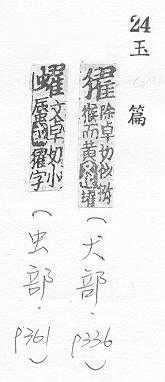 24
玉篇
除卓切似
猴而黄
(犬部．p336)
蠗 卓切小
蜃 字
(虫部．p361)